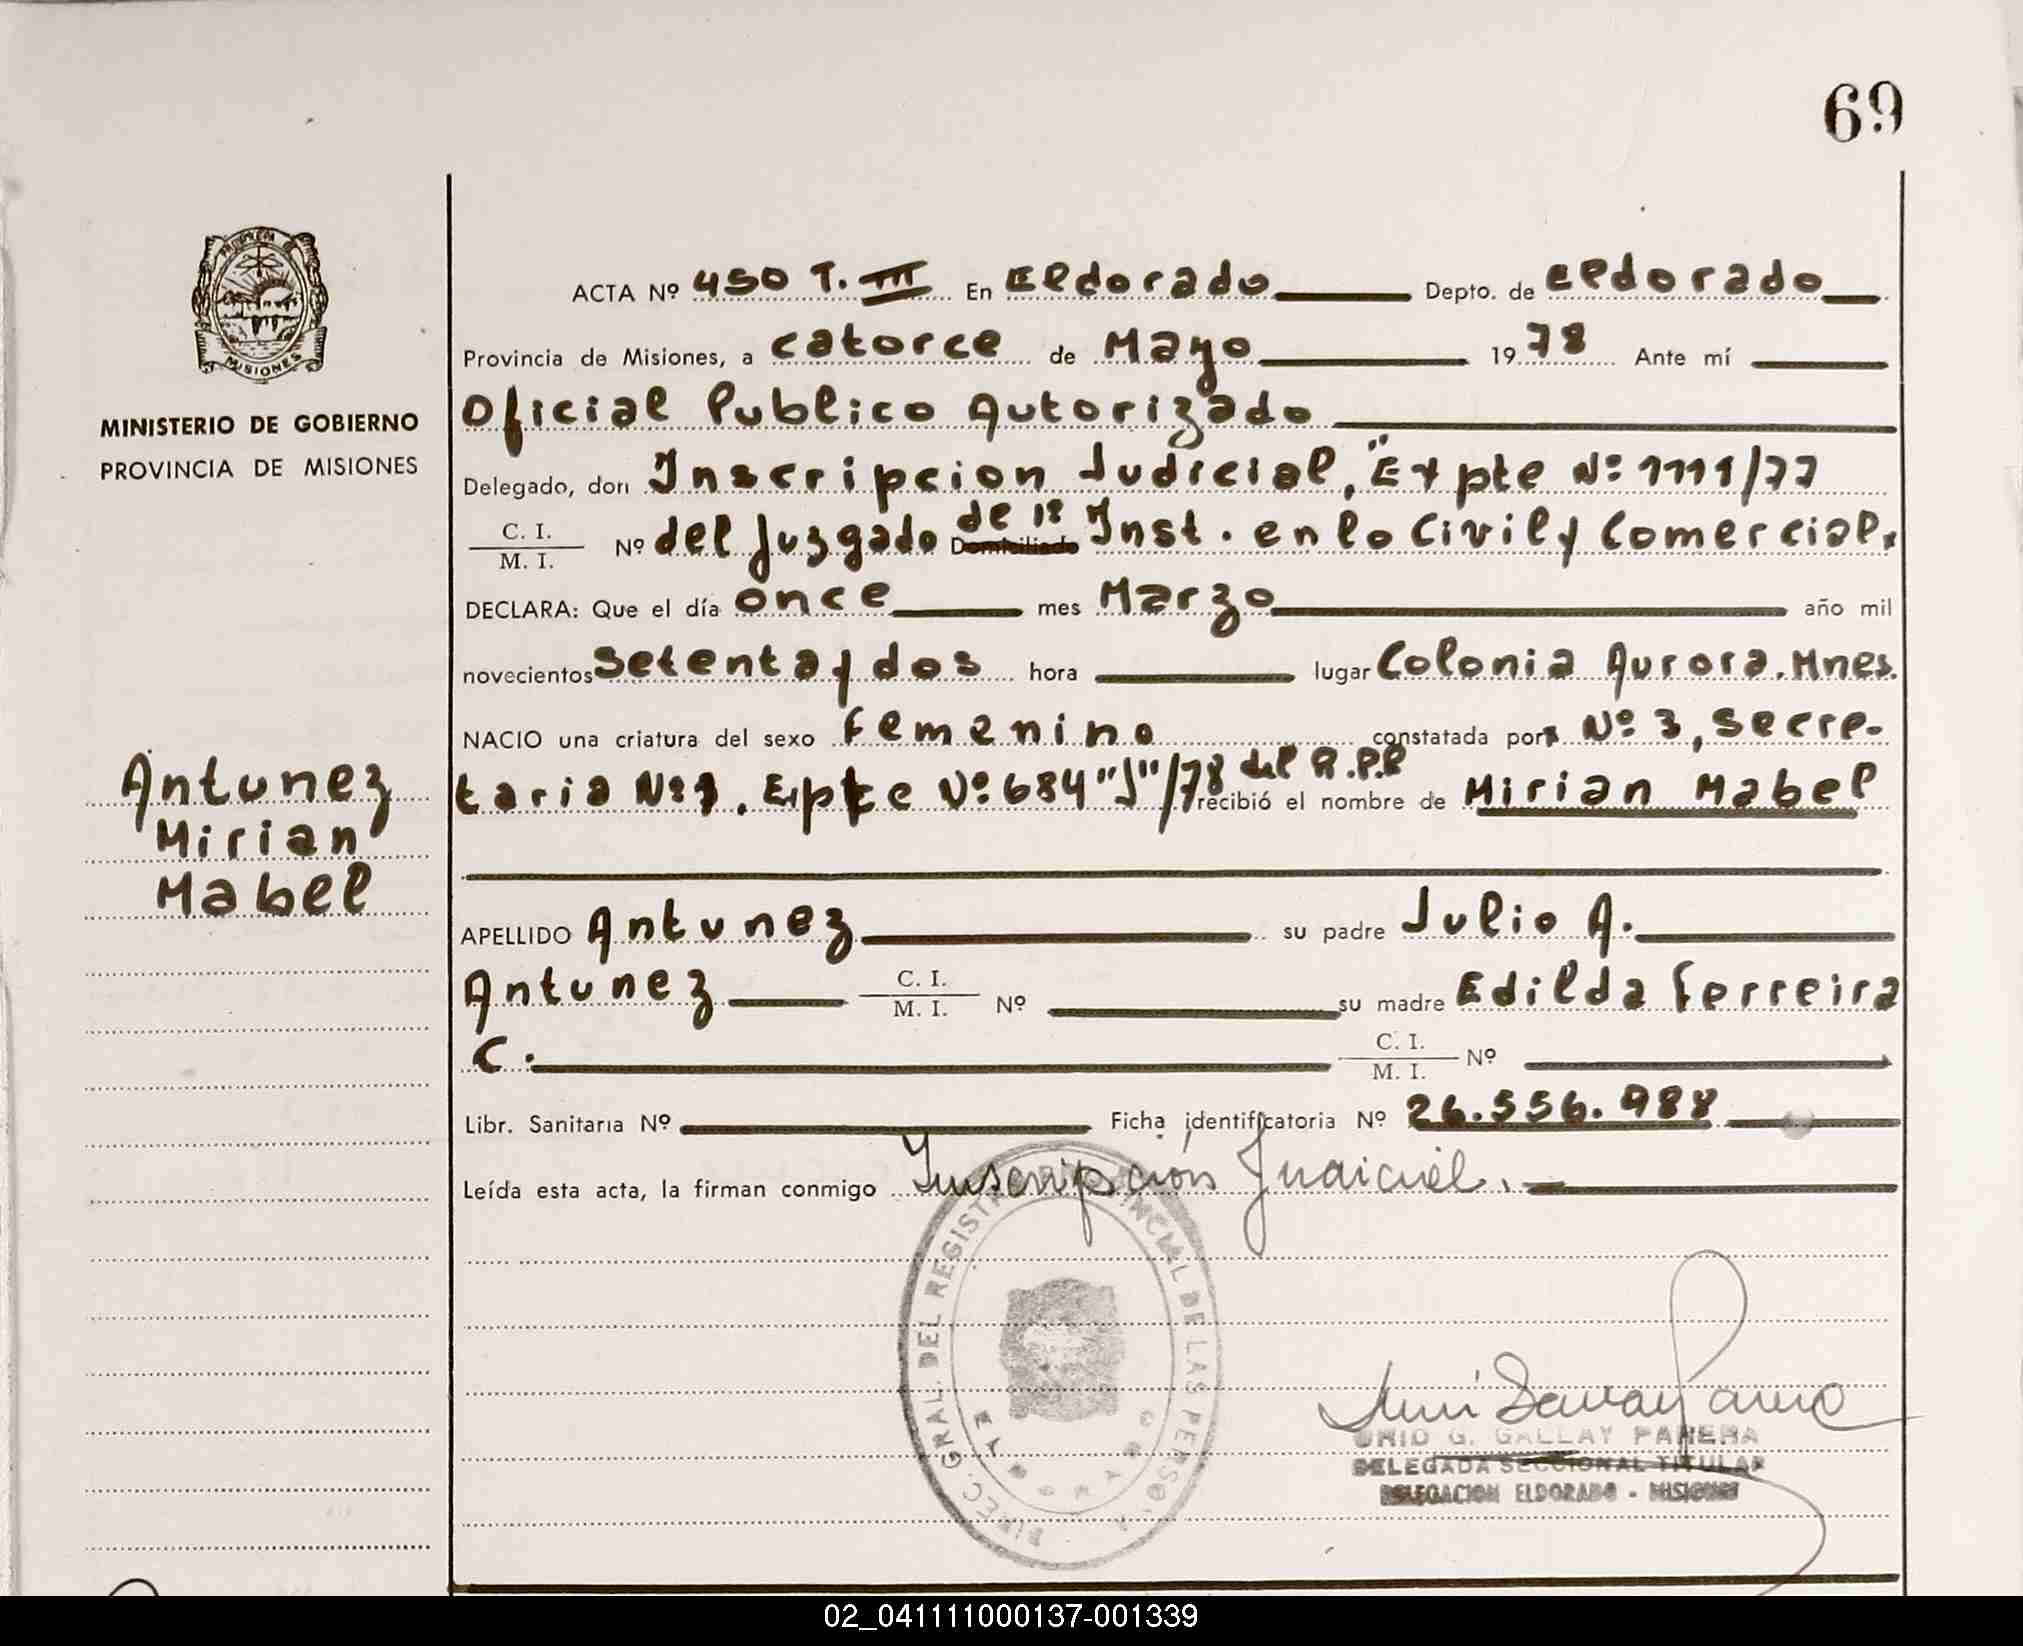 69
MISIONES
MINISTERIO DE GOBIERNO
PROVINCIA DE MISIONES
Antunez
Mirian
Mabel
ACTA Nº 450 T. III En Eldorado Depto. de Eldorado
Provincia de Misiones, a catorce de Mayo 1978 Ante mí
Oficial Publico Autorizado
Delegado, don Inscripcion Judicial, "Expte Nº 1111/77
C. I. / M. I. Nº del Juzgado Domiciliado de 1ª Inst. en lo Civil y Comercial
DECLARA: Que el día once mes Marzo año mil
novecientos Setenta y dos hora lugar Colonia Aurora. Mnes.
NACIO una criatura del sexo femenino constatada por Nº 3, Secre-
taria Nº 1. Expte Nº 684 "J"/78 del R.P.P recibió el nombre de Mirian Mabel
APELLIDO Antunez su padre Julio A.
Antunez C. I. / M. I. Nº su madre Edilda Ferreira
C. C. I. / M. I. Nº
Libr. Sanitaria Nº Ficha identificatoria Nº 26.556.988
Leída esta acta, la firman conmigo Inscripción Judicial.
DIREC. GRAL. DEL REGISTRO PROVINCIAL DE LAS PERSONAS
G. GALLAY PARERA
DELEGADA SECCIONAL TITULAR
DELEGACION ELDORADO - MISIONES
02_041111000137-001339